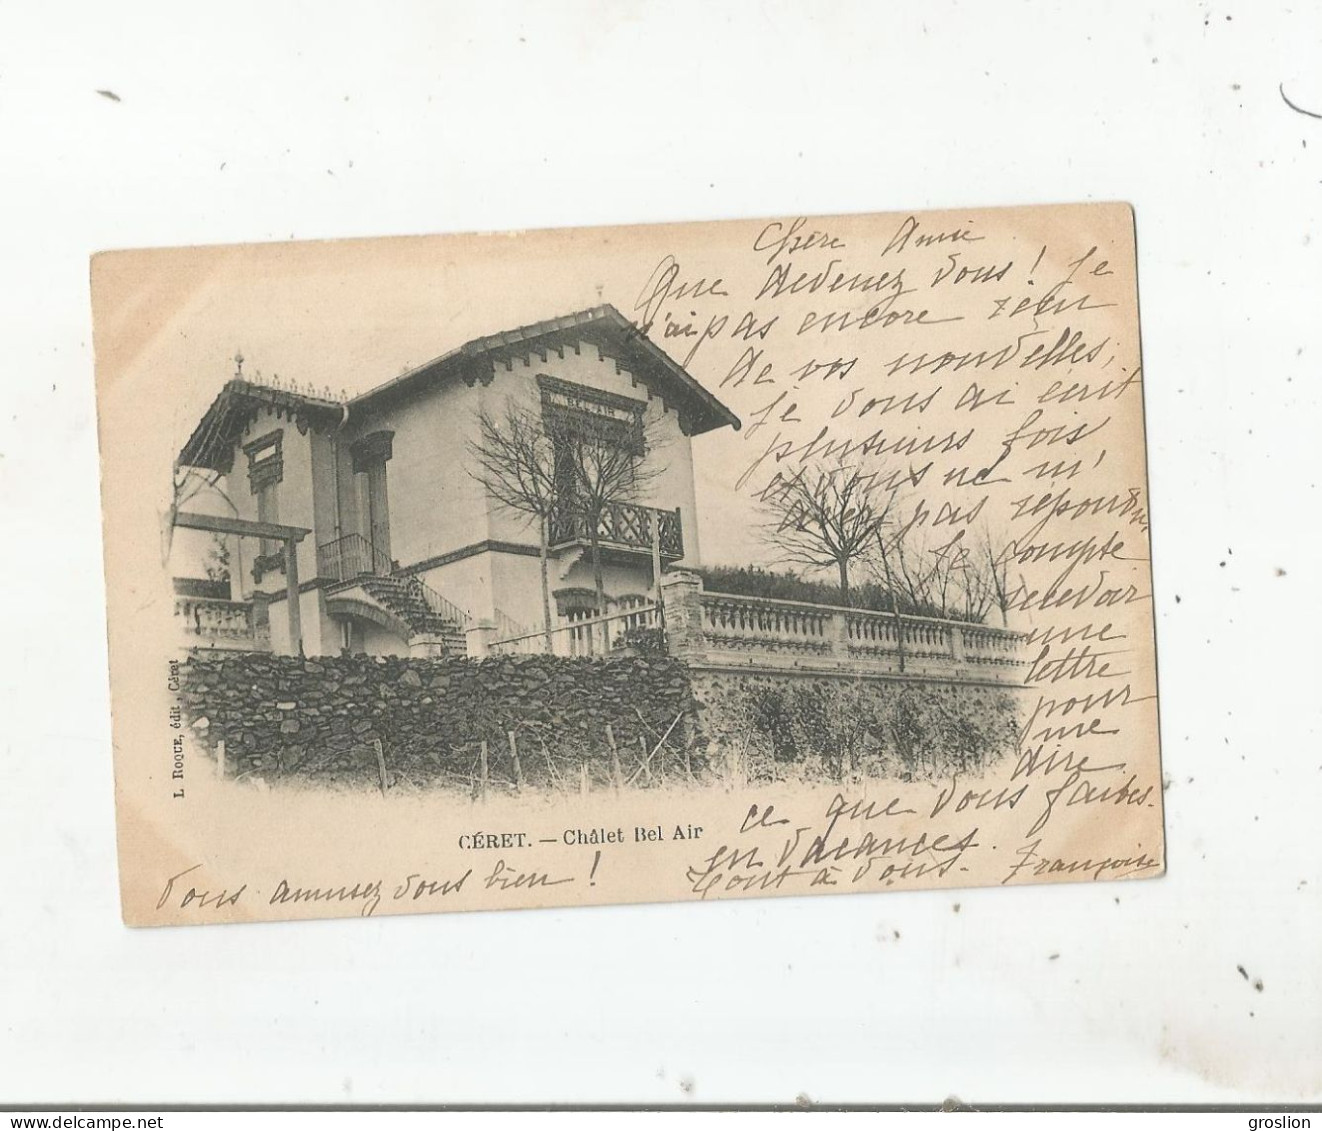 Chère Amie
Que devenez vous! Je
n'ai pas encore reçu
de vos nouvelles,
je vous ai écrit
plusieurs fois
et vous ne m'
avez pas répondu.
Je compte
recevoir
une
lettre
pour
me
dire
ce que vous faites
en vacances.
Tout à vous. Françoise
Vous amusez vous bien!
BEL AIR
L. ROQUE, édit., Céret
CÉRET. — Châlet Bel Air
groslion